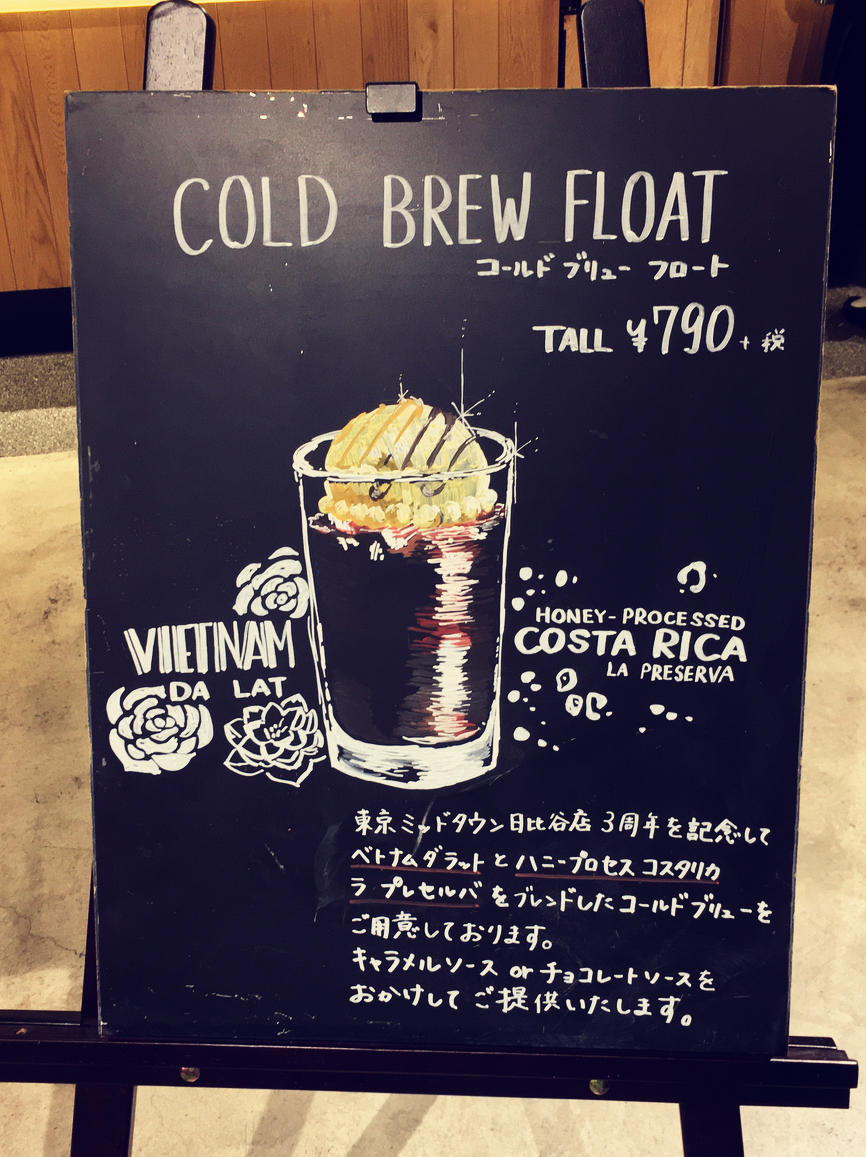 COLD BREW FLOAT
コールド ブリュー フロート
TALL ¥790+税
VIETNAM
DA LAT
HONEY-PROCESSED
COSTA RICA
LA PRESERVA
東京ミッドタウン日比谷店 3周年を記念して
ベトナムダラットとハニープロセスコスタリカ
ラ プレセルバをブレンドしたコールドブリューを
ご用意しております。
キャラメルソース or チョコレートソースを
おかけしてご提供いたします。